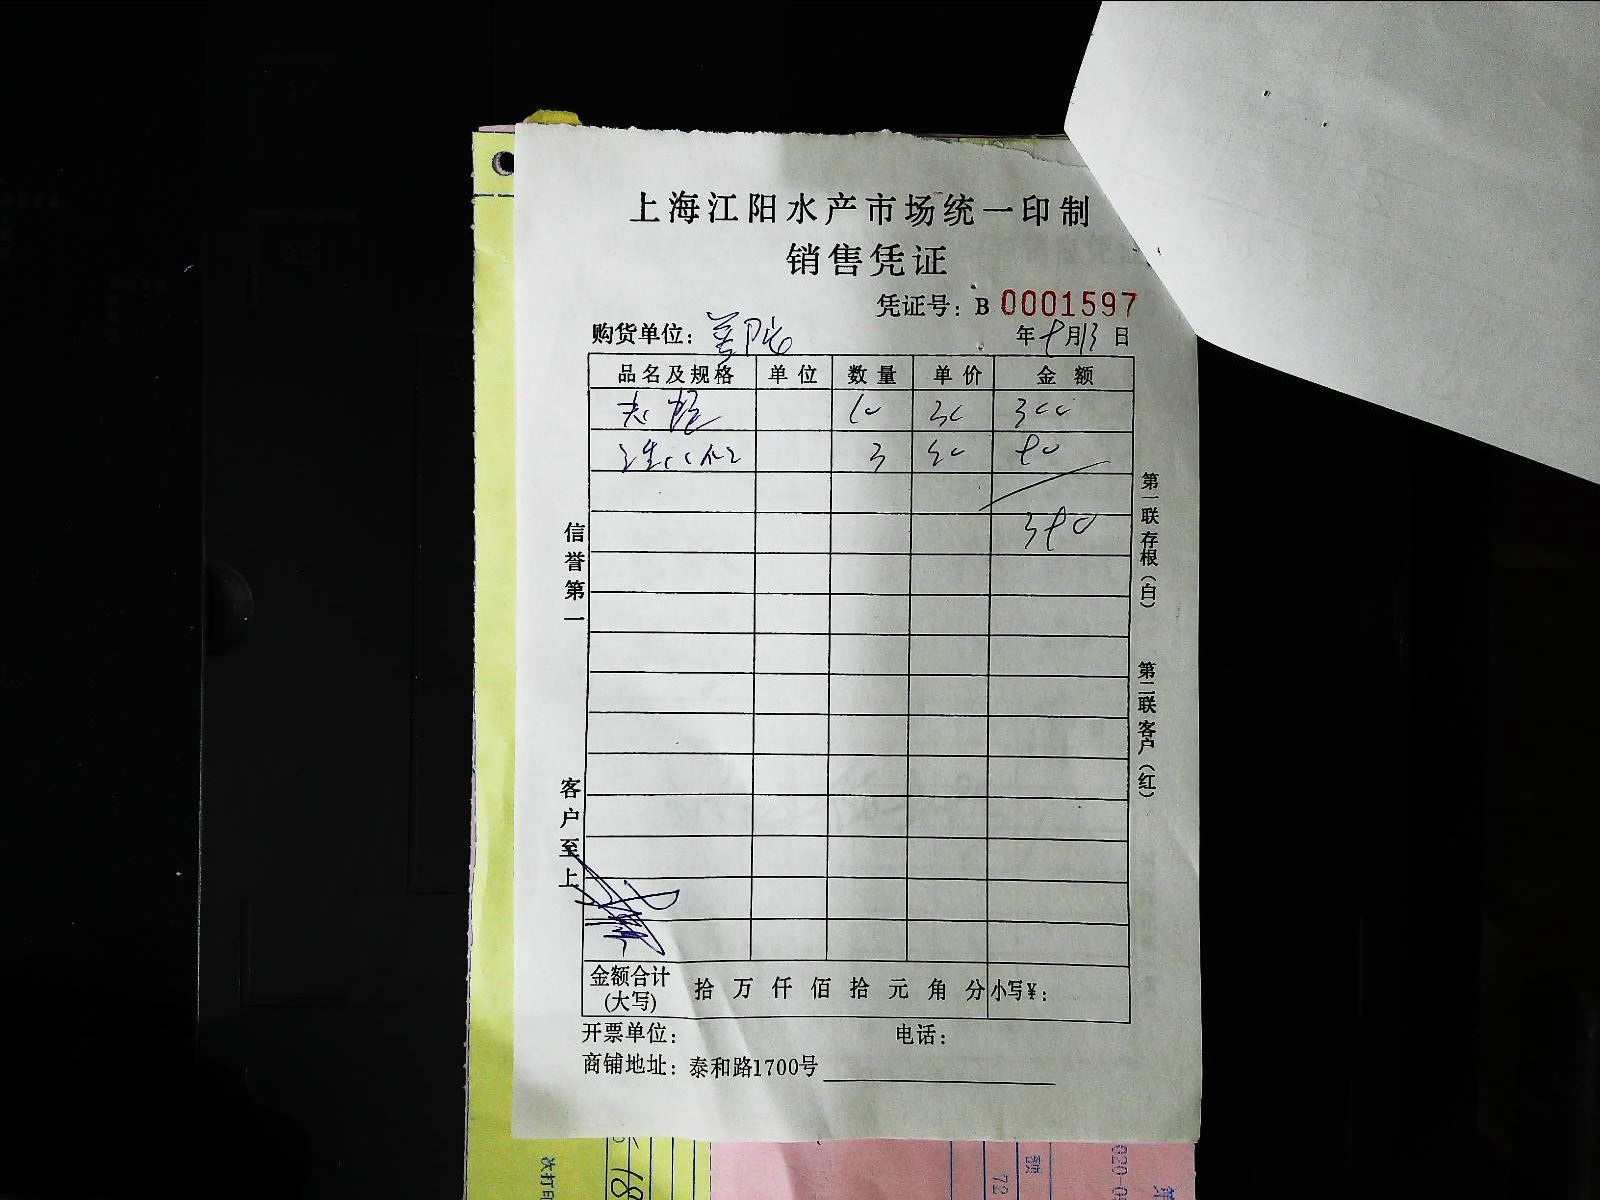 上海江阳水产市场统一印制
销售凭证
凭证号：B 0001597
购货单位：普陀 年 7月13日
品名及规格 单位 数量 单价 金额
10 30 300
3
信誉第一
客户至上
第一联存根（白）
第二联客户（红）
金额合计(大写) 拾万仟佰拾元角分 小写¥：
开票单位： 电话：
商铺地址：泰和路1700号
次打印
18
72